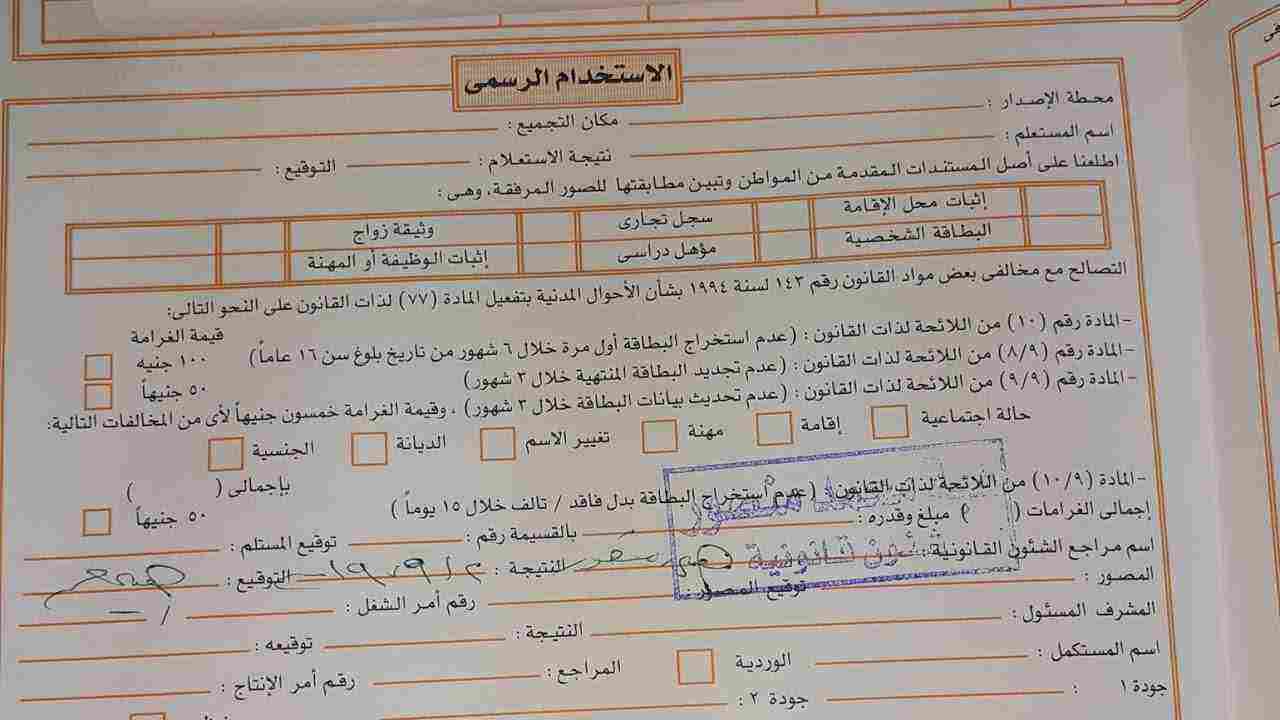 الاستخدام الرسمى
محطة الإصدار : مكان التجميع :
اسم المستعلم : نتيجة الاستعلام : التوقيع :
اطلعنا على أصل المستندات المقدمة من المواطن وتبين مطابقتها للصور المرفقة، وهى :
إثبات محل الإقامة سجل تجارى وثيقة زواج
البطاقة الشخصية مؤهل دراسى إثبات الوظيفة أو المهنة
التصالح مع مخالفى بعض مواد القانون رقم ١٤٣ لسنة ١٩٩٤ بشأن الأحوال المدنية بتفعيل المادة (٧٧) لذات القانون على النحو التالى:
قيمة الغرامة
-المادة رقم (١٠) من اللائحة لذات القانون : (عدم استخراج البطاقة أول مرة خلال ٦ شهور من تاريخ بلوغ سن ١٦ عاماً) ١٠٠ جنيه
-المادة رقم (٨/٩) من اللائحة لذات القانون : (عدم تجديد البطاقة المنتهية خلال ٣ شهور) ٥٠ جنيهاً
-المادة رقم (٩/٩) من اللائحة لذات القانون : (عدم تحديث بيانات البطاقة خلال ٣ شهور) ، وقيمة الغرامة خمسون جنيهاً لأى من المخالفات التالية:
حالة اجتماعية إقامة مهنة تغيير الاسم الديانة الجنسية
بإجمالى ( )
-المادة (١٠/٩) من اللائحة لذات القانون : (عدم استخراج البطاقة بدل فاقد / تالف خلال ١٥ يوماً) ٥٠ جنيهاً
إجمالى الغرامات ( ) مبلغ وقدره : بالقسيمة رقم : توقيع المستلم :
اسم مراجع الشئون القانونية : النتيجة : التوقيع :
شئون قانونية
المصور : توقيع المصور : رقم أمر الشغل :
المشرف المسئول : النتيجة : توقيعه :
اسم المستكمل : الوردية المراجع : رقم أمر الإنتاج :
جودة ١ : جودة ٢ :